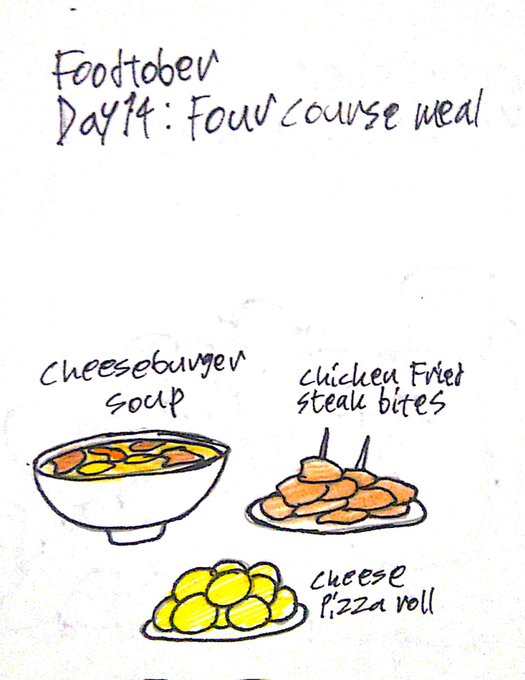 Foodtober
Day 14: Four course meal
cheeseburger
soup
chicken Fried
steak bites
cheese
Pizza roll